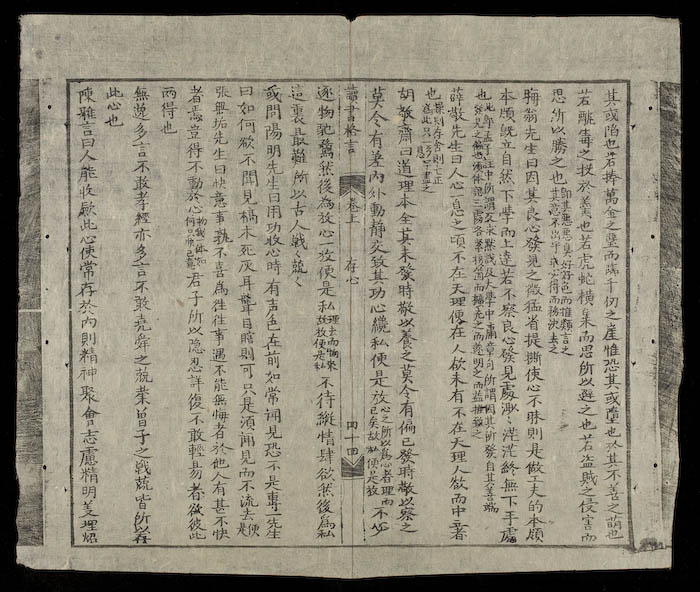 其或陷也若捧萬金之璽而臨千仞之崖惟恐其或墮也於其不善之萌也
若酖毒之投於羹也若虎蛇橫集而思所以避之也若盜賊之侵害而
思所以勝之也
晦翁先生曰因其良心發見之微猛省提撕使心不昧則是做工夫的本領
本領既立自然下學而上達若不察良心發見處渺渺茫茫終無下手處
也
薛敬先生曰人心一息之頃不在天理便在人欲未有不在天理人欲而中立者
也
胡敬齋曰道理本全其未發時敬以養之莫令有偏已發時敬以察之
莫令有差內外動靜交致其功心纔私便是放
不必
讀書格言 卷上 存心 四十四
逐物馳騖然後為放心一放便是私
不待縱情肆欲然後為私
這裏最難所以古人戰戰兢兢
或問陽明先生曰用功收心時有声色在前如常闻見恐不是專一先生
曰如何欲不聞見槁木死灰耳聾目瞎則可只是須聞見而不流去便是
張無垢先生曰快意事孰不喜為往往事過不能無悔者於他人有甚不快
者焉豈得不動於心
君子所以隱忍詳復不敢輕易者欲彼此
兩得也
無逸多言不敢孝經亦多言不敢堯舜之兢業曾子之戰兢皆所以存
此心也
陳雅言曰人能收斂此心使常存於內則精神聚會志慮精明義理炤